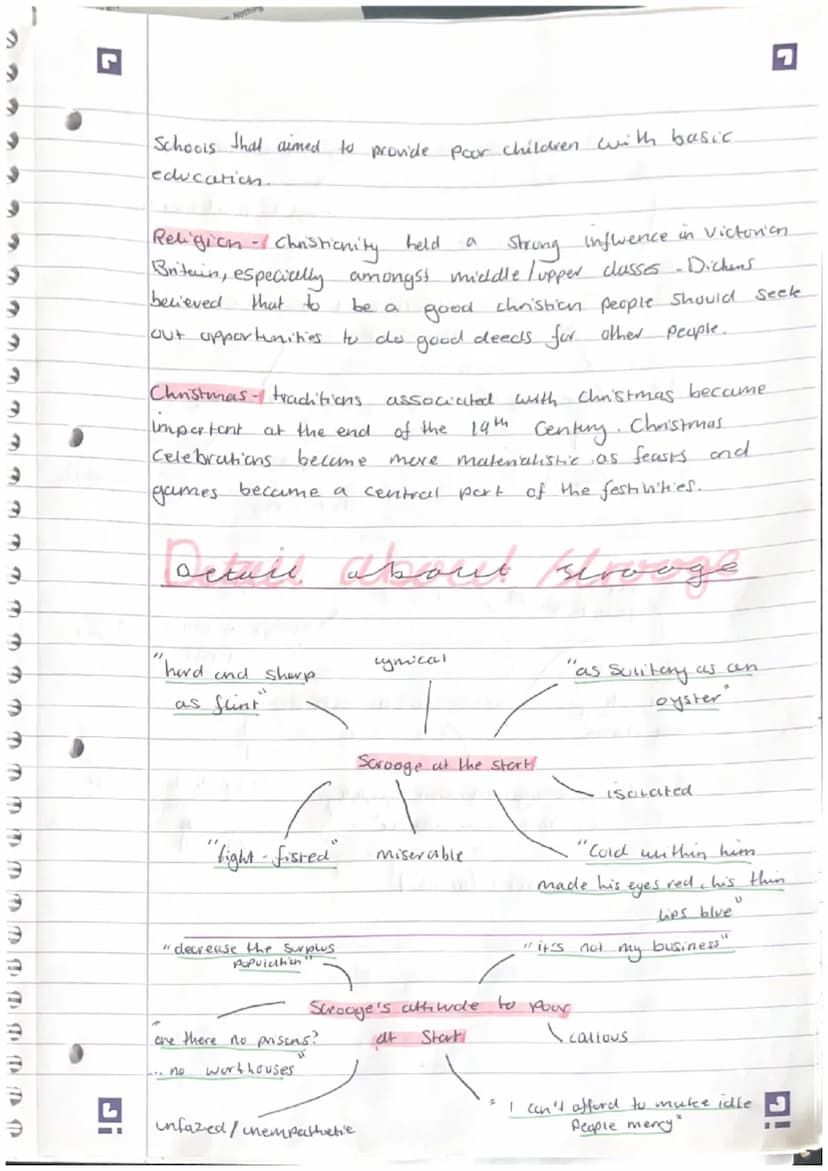 Nothing
Schools that aimed to provide poor children with basic
education.
Religion - Christianity held a strong influence in Victorian
Britain, especially amongst middle/upper classes. Dickens
believed that to be a good christian people should seek
out opportunities to do good deeds for other people.
Christmas - traditions associated with christmas became
important at the end of the 19th Century. Christmas
celebrations became more materialistic as feasts and
games became a central part of the festivities.
Detail about Scrooge
"hard and sharp
as flint"
cynical
"as solitary as an
oyster"
Scrooge at the start
isolated
"tight-fisted"
miserable
"Cold within him
made his eyes red, his thin
lips blue"
"decrease the surplus
population"
"it's not my business"
Scrooge's attitude to Poor
at Start
"are there no prisons?
... no workhouses"
callous
unfazed/unempathetic
"I can't afford to make idle
People merry"